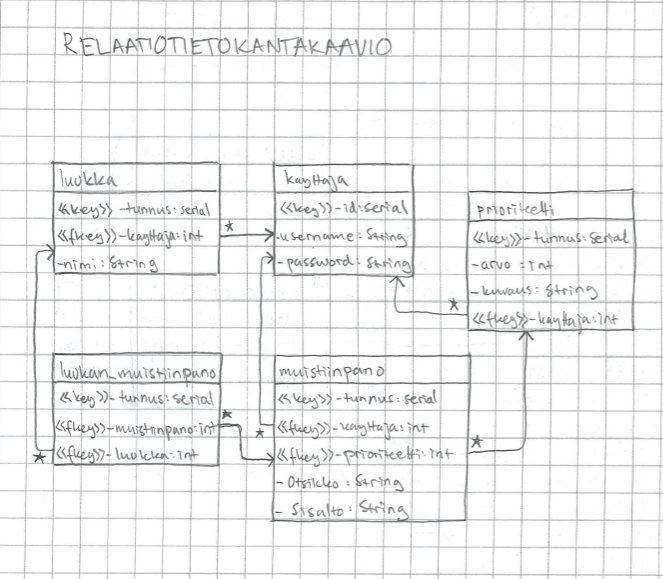 RELAATIOTIETOKANTAKAAVIO
luokka
<<key>>-tunnus:serial
<<fkey>>-kayttaja:int
-nimi:String
kayttaja
<<key>>-id:serial
-username:String
-password:String
prioriteetti
<<key>>-tunnus:serial
-arvo:int
-kuvaus:String
<<fkey>>-kayttaja:int
luokan_muistiinpano
<<key>>-tunnus:serial
<<fkey>>-muistiinpano:int
<<fkey>>-luokka:int
muistiinpano
<<key>>-tunnus:serial
<<fkey>>-kayttaja:int
<<fkey>>-prioriteetti:int
-Otsikko:String
-Sisalto:String